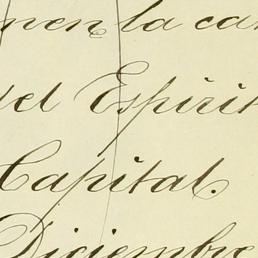 nen la ca
del Espirit
Capital.
Diciembre